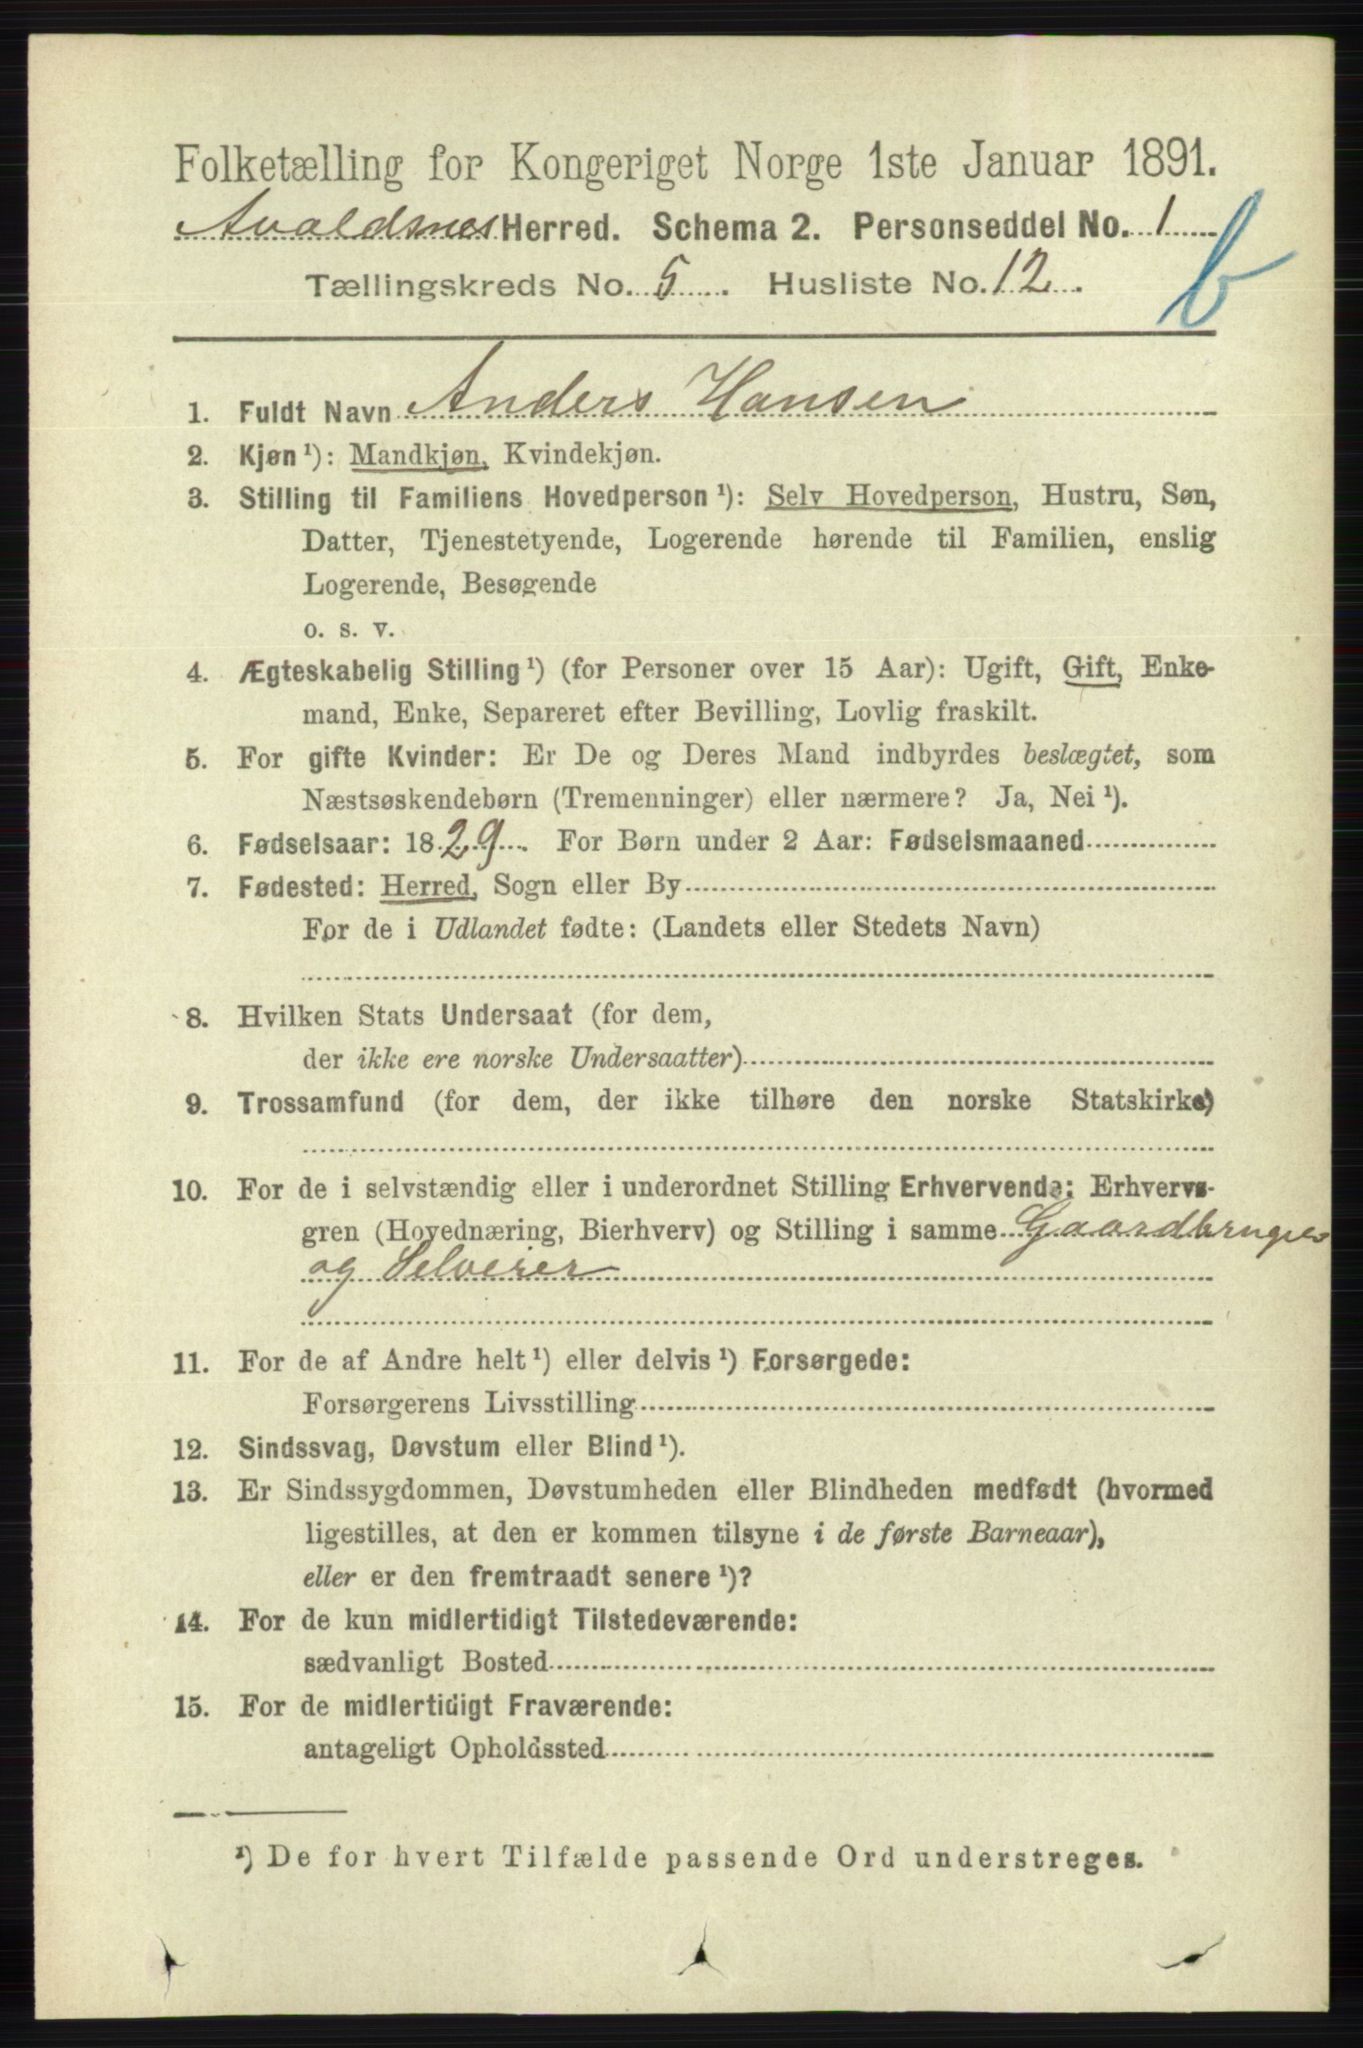 Folketælling for Kongeriget Norge 1ste Januar 1891.
Avaldsnes Herred. Schema 2. Personseddel No. 1
Tællingskreds No. 5. Husliste No. 12.
b
1. Fuldt Navn Anders Hansen
2. Kjøn ¹): Mandkjøn, Kvindekjøn.
3. Stilling til Familiens Hovedperson ¹): Selv Hovedperson, Hustru, Søn,
Datter, Tjenestetyende, Logerende hørende til Familien, enslig
Logerende, Besøgende
o. s. v.
4. Ægteskabelig Stilling ¹) (for Personer over 15 Aar): Ugift, Gift, Enke-
mand, Enke, Separeret efter Bevilling, Lovlig fraskilt.
5. For gifte Kvinder: Er De og Deres Mand indbyrdes beslægtet, som
Næstsøskendebørn (Tremenninger) eller nærmere? Ja, Nei ¹).
6. Fødselsaar: 1829. For Børn under 2 Aar: Fødselsmaaned
7. Fødested: Herred, Sogn eller By
For de i Udlandet fødte: (Landets eller Stedets Navn)
8. Hvilken Stats Undersaat (for dem,
der ikke ere norske Undersaatter)
9. Trossamfund (for dem, der ikke tilhøre den norske Statskirke)
10. For de i selvstændig eller i underordnet Stilling Erhvervende: Erhvervs-
gren (Hovednæring, Bierhverv) og Stilling i samme Gaardbruger
og Selveier
11. For de af Andre helt ¹) eller delvis ¹) Forsørgede:
Forsørgerens Livsstilling
12. Sindssvag, Døvstum eller Blind ¹).
13. Er Sindssygdommen, Døvstumheden eller Blindheden medfødt (hvormed
ligestilles, at den er kommen tilsyne i de første Barneaar),
eller er den fremtraadt senere ¹)?
14. For de kun midlertidigt Tilstedeværende:
sædvanligt Bosted
15. For de midlertidigt Fraværende:
antageligt Opholdssted
¹) De for hvert Tilfælde passende Ord understreges.